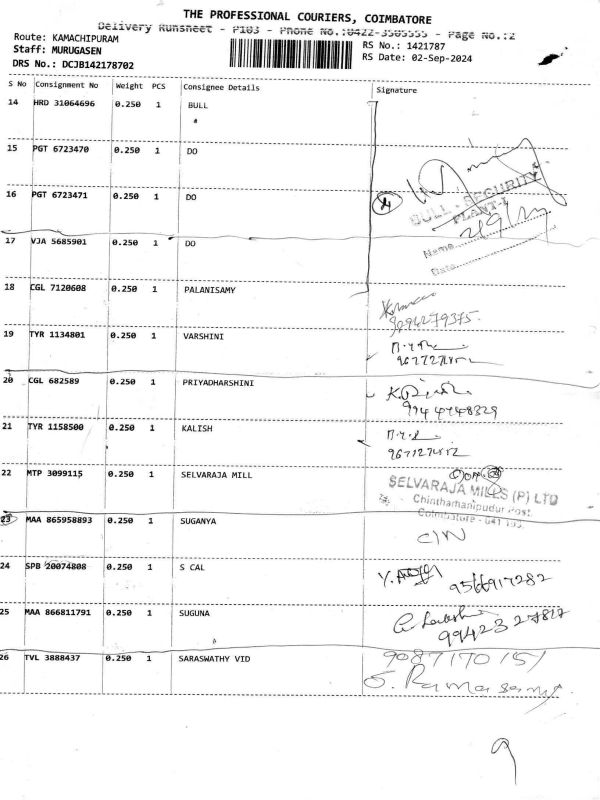 THE PROFESSIONAL COURIERS, COIMBATORE
Delivery Runsheet - P103 - Phone No.:0422-3505555 - Page No.:2
Route: KAMACHIPURAM
RS No.: 1421787
Staff: MURUGASEN
RS Date: 02-Sep-2024
DRS No.: DCJB142178702
S No Consignment No Weight PCS Consignee Details Signature
14 HRD 31064696 0.250 1 BULL
#
15 PGT 6723470 0.250 1 DO
16 PGT 6723471 0.250 1 DO
BULL - SECURITY
PLANT-I
2/9/24
17 VJA 5685901 0.250 1 DO
Name
Date
18 CGL 7120608 0.250 1 PALANISAMY
9294279375
19 TYR 1134801 0.250 1 VARSHINI
20 CGL 682589 0.250 1 PRIYADHARSHINI
9944748329
21 TYR 1158500 0.250 1 KALISH
22 MTP 3099115 0.250 1 SELVARAJA MILL
SELVARAJA MILLS (P) LTD
Chinthamanipudur Post
Coimbatore - 641 103
23 MAA 865958893 0.250 1 SUGANYA
C/N
24 SPB 20074808 0.250 1 S CAL
9566917282
25 MAA 866811791 0.250 1 SUGUNA
9942327817
26 TVL 3888437 0.250 1 SARASWATHY VID
9087170151
S. Ramasamy
9